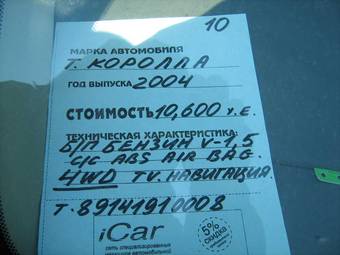 10
МАРКА АВТОМОБИЛЯ
Т. КОРОЛЛА
ГОД ВЫПУСКА 2004
СТОИМОСТЬ 10,600 У.Е.
ТЕХНИЧЕСКАЯ ХАРАКТЕРИСТИКА:
Б/П БЕНЗИН V-1,5
С/С ABS AIR BAG.
4WD TV. НАВИГАЦИЯ.
Т. 89141910008
iCar
5%
СКИДКА
сеть специализированных